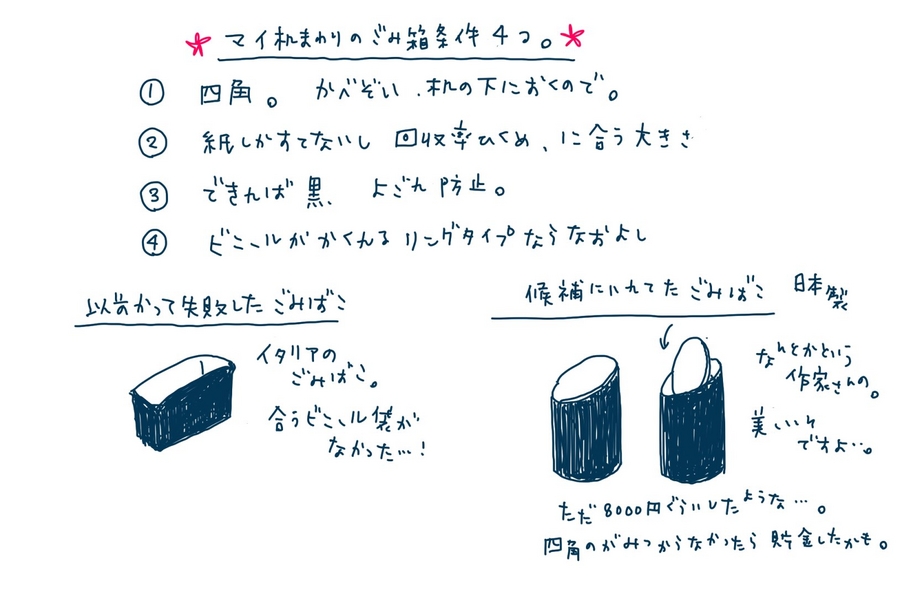 マイ机まわりのごみ箱条件4つ。
① 四角。 かべぞい、机の下におくので。
② 紙しかすてないし 回収率ひくめ、に合う大きさ
③ できれば黒、 よごれ防止。
④ ビニールがかくれる リングタイプならなおよし
以前かって失敗したごみばこ
イタリアの
ごみばこ。
合うビニール袋が
なかった…!
候補にいれてたごみばこ 日本製
なんとかという
作家さんの。
美しいん
ですよ…。
ただ8000円ぐらいしたような…。
四角のがみつからなかったら 貯金したかも。